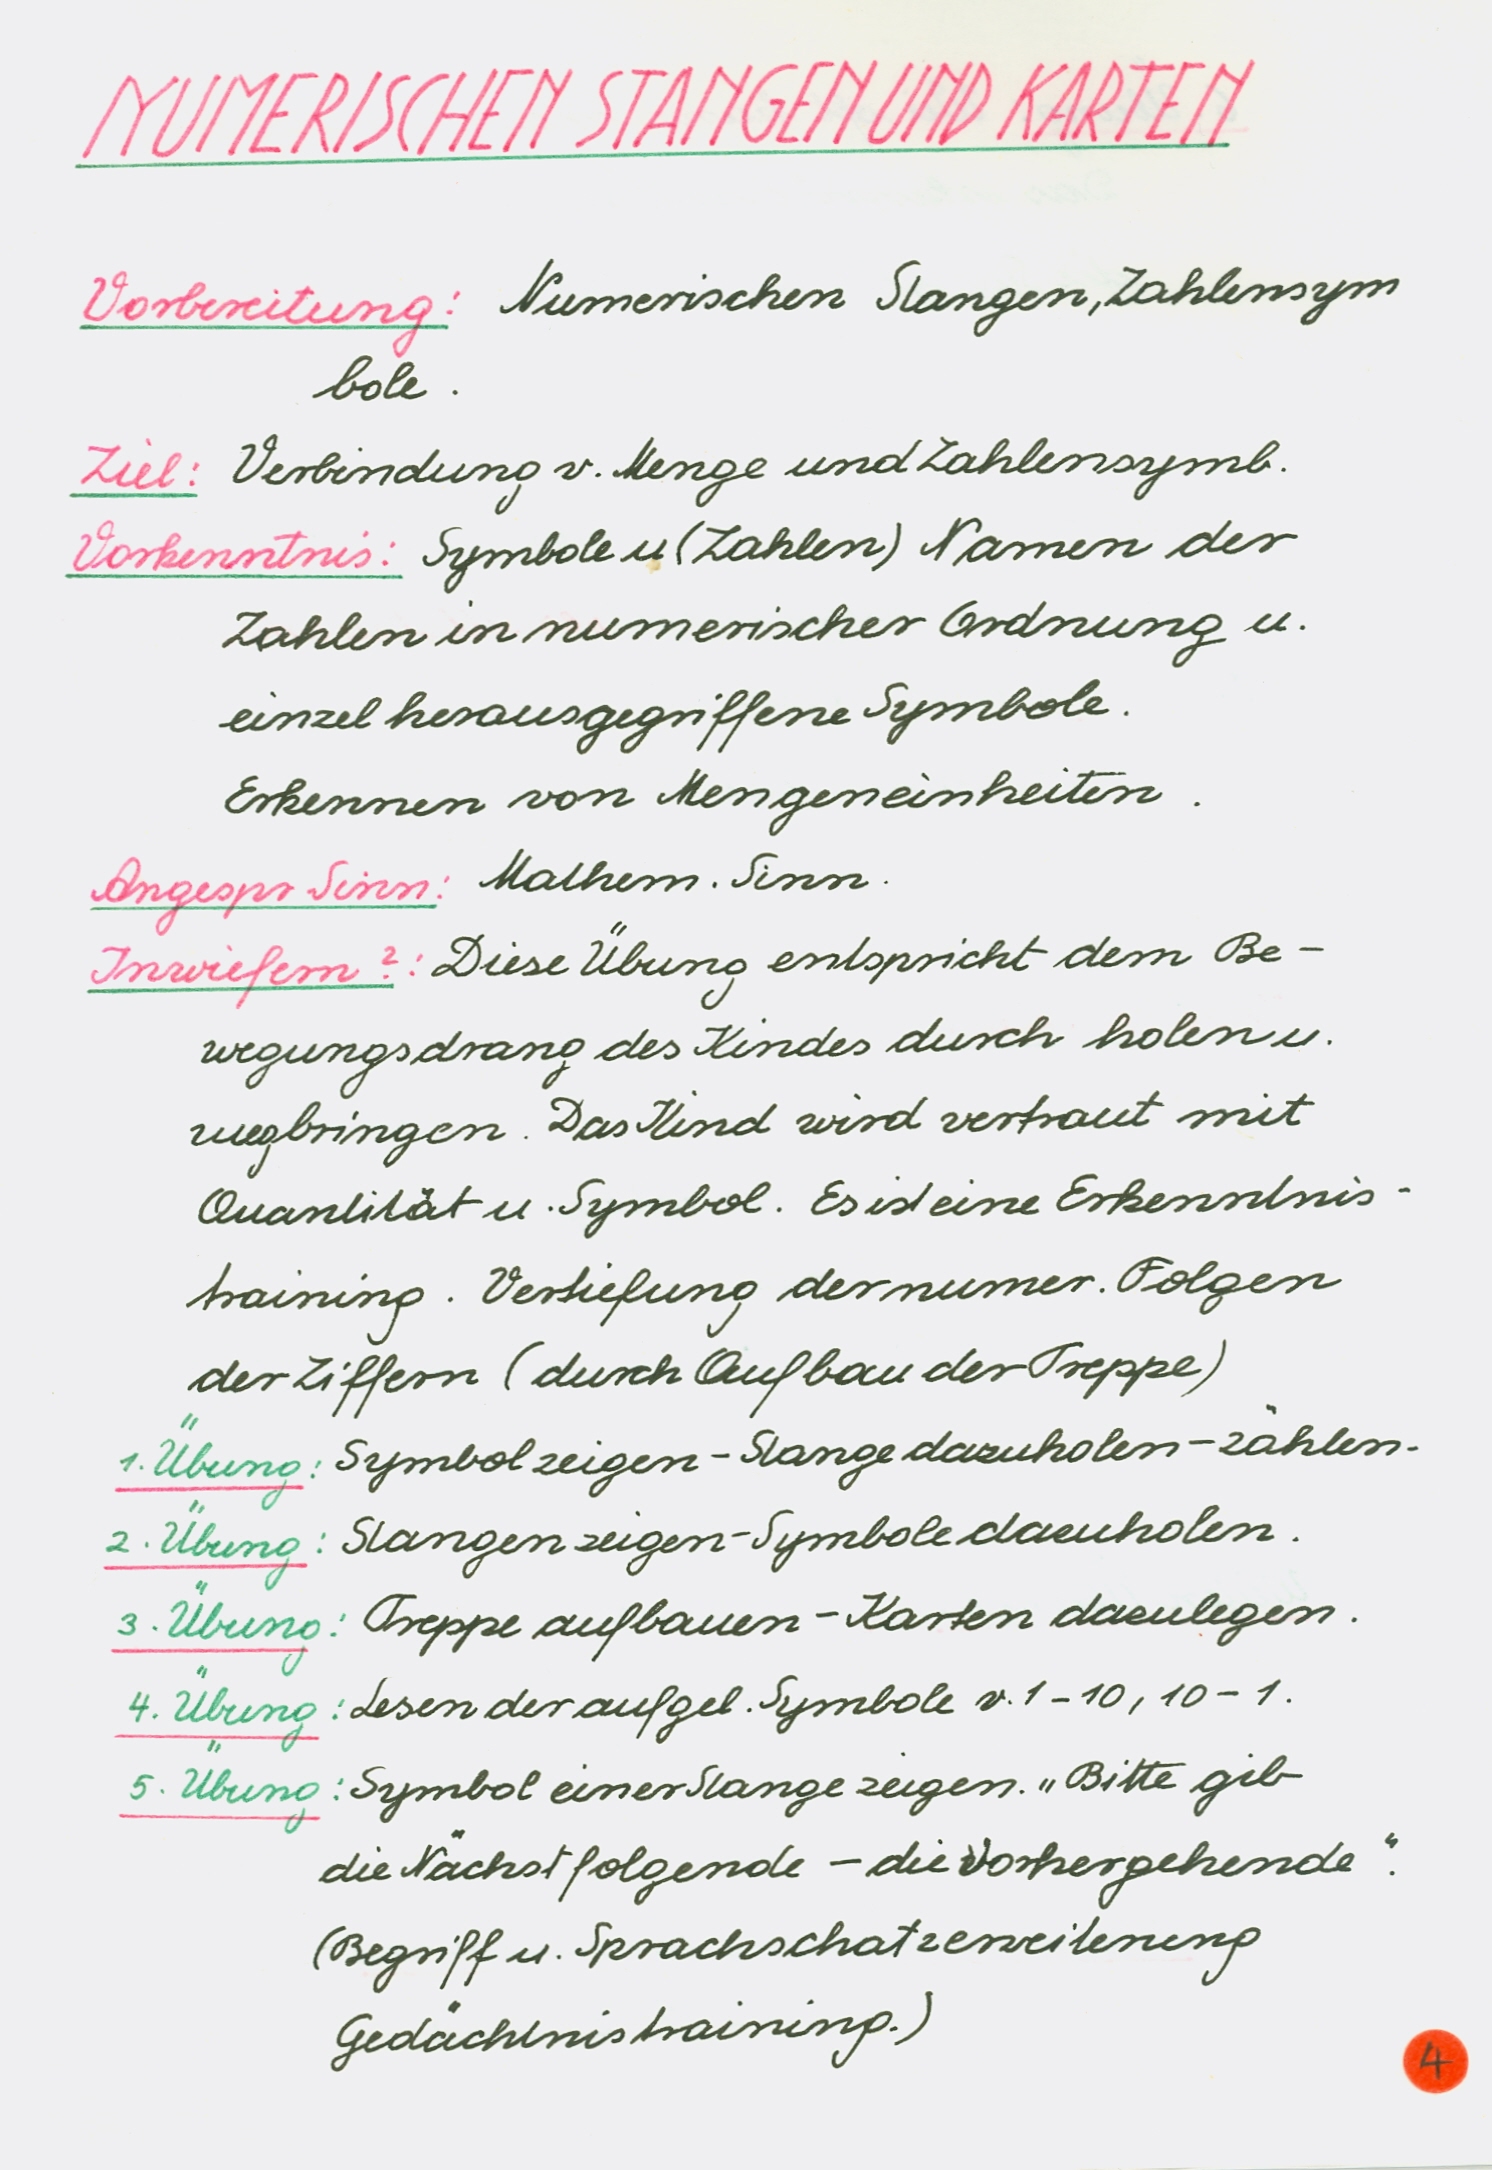 NUMERISCHEN STANGEN UND KARTEN
Vorbereitung: Numerischen Stangen, Zahlensym
bole.
Ziel: Verbindung v. Menge und Zahlensymb.
Vorkenntnis: Symbole u (Zahlen) Namen der
Zahlen in numerischer Ordnung u.
einzel herausgegriffene Symbole.
Erkennen von Mengeneinheiten.
Angespr Sinn: Mathem. Sinn.
Inwiefern?: Diese Übung entspricht dem Be-
wegungsdrang des Kindes durch holen u.
wegbringen. Das Kind wird vertraut mit
Quantität u. Symbol. Es ist eine Erkenntnis-
training. Vertiefung der numer. Folgen
der Ziffern (durch Aufbau der Treppe)
1. Übung: Symbol zeigen - Stange dazuholen - zählen.
2. Übung: Stangen zeigen - Symbole dazuholen.
3. Übung: Treppe aufbauen - Karten dazulegen.
4. Übung: Lesen der aufgel. Symbole v. 1 - 10, 10 - 1.
5. Übung: Symbol einer Stange zeigen. „Bitte gib
die Nächstfolgende - die Vorhergehende“.
(Begriff u. Sprachschatzerweiterung
Gedächtnistraining.)
4